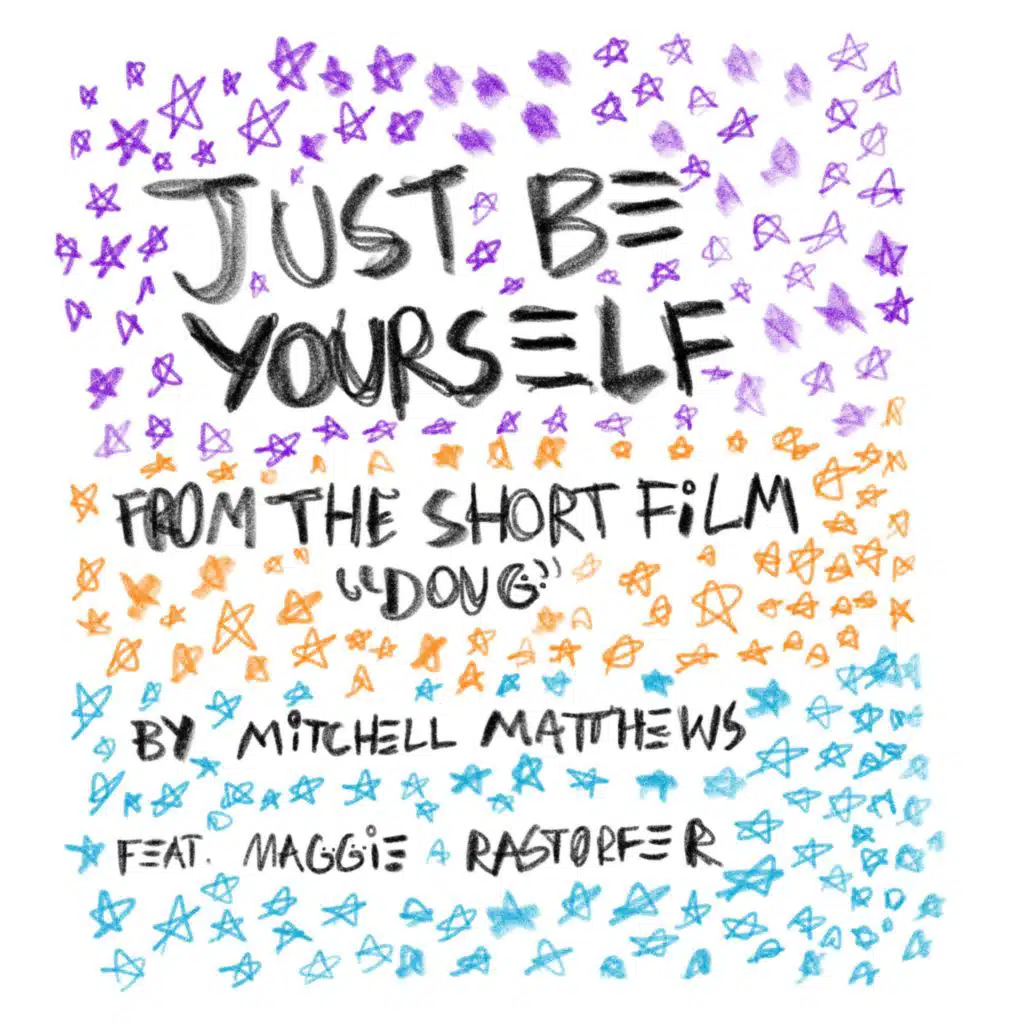 JUST BE
YOURSELF
FROM THE SHORT FiLM
"DOUG"
BY MiTCHELL MATTHEWS
FEAT. MAGGiE RASTORFER